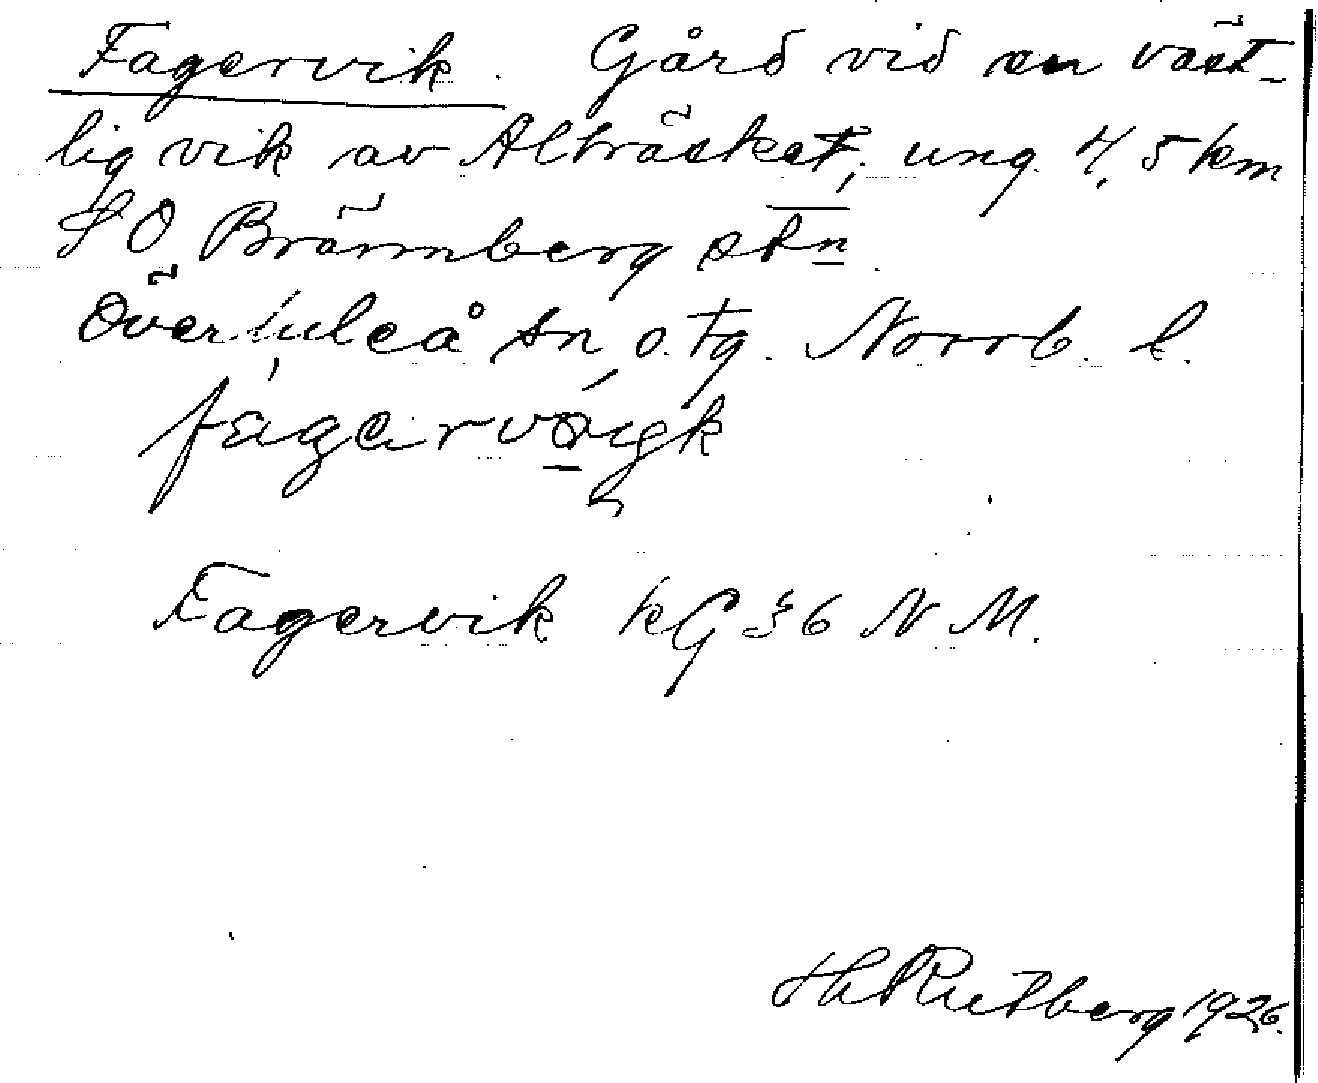 Fagervik. Gård vid en väst-
lig vik av Alträsket, ung. 4,5 km
SO Brännberg stn.
Överluleå sn, o. tg. Norrb. l.
Fagervik kG 36 N M.
Rutberg 1926.